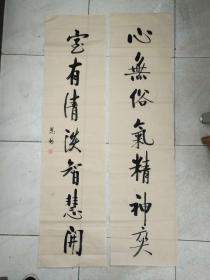 心無俗氣精神爽
室有清淡智慧開